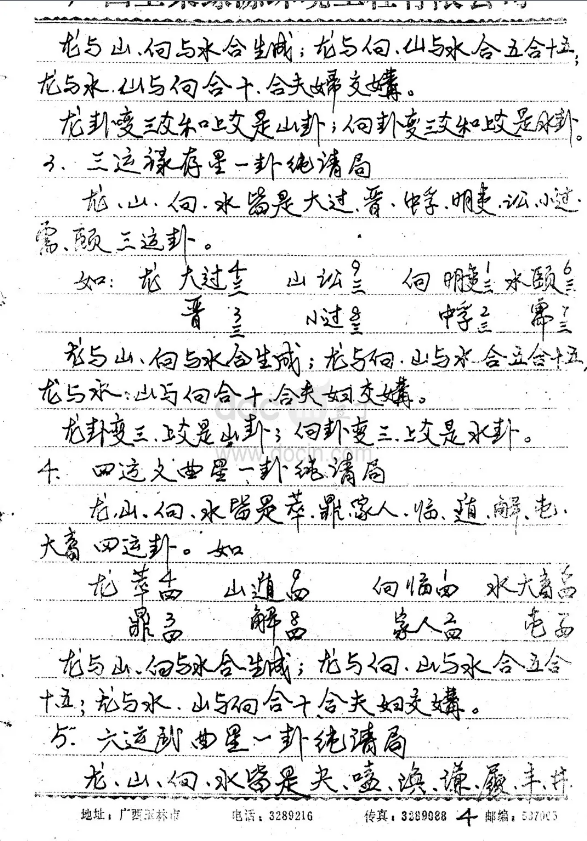 龙与山、向与水合生成；龙与向、山与水合五合十五；
龙与水、山与向合十、合夫婦交媾。
龙卦变三爻和上爻是山卦；向卦变三爻和上爻是水卦。
3. 三运禄存星一卦纯清局
龙、山、向、水皆是大过、晋、中孚、明夷、讼、小过、
需、颐三运卦。
如：龙 大过4/三 山讼9/三 向明夷1/三 水颐6/三
晋3/三 小过8/三 中孚2/三 需7/三
龙与山、向与水合生成；龙与向、山与水合五合十五，
龙与水：山与向合十、合夫妇交媾。
龙卦变三、上爻是山卦；向卦变三、上爻是水卦。
4. 四运文曲星一卦纯请局
龙、山、向、水皆是萃、鼎、家人、临、遁、解、屯、
大畜四运卦。如
龙萃4/四 山遁9/四 向临1/四 水大畜6/四
鼎3/四 解8/四 家人2/四 屯7/四
龙与山、向与水合生成；龙与向、山与水合五合
十五；龙与水、山与向合十合夫妇交媾。
5. 六运武曲星一卦纯请局
龙、山、向、水皆是夬、嗑、涣、谦、履、丰、井、
地址：广西玉林市 电话：3289216 传真：3289088 4 邮编：537005
www.docin.com